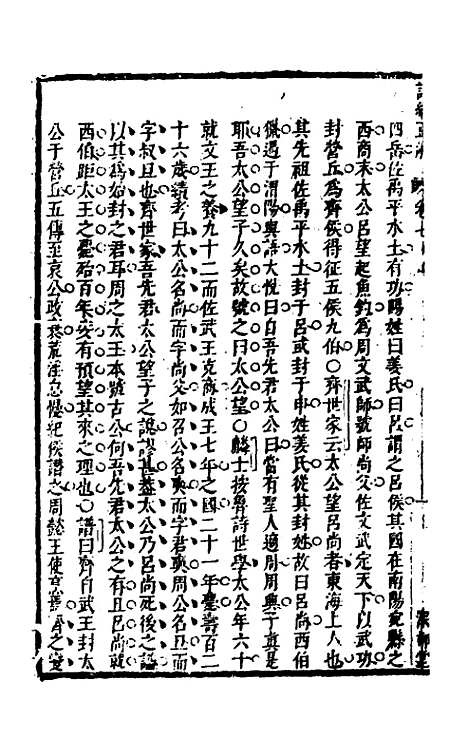 四岳佐禹平水土有功賜姓曰姜氏曰呂謂之呂侯其國在南陽宛縣之
西商末太公呂望起魚釣為周文武師號師尚父佐文武定天下以武功
封營丘為齊侯得征五侯九伯○齊世家云太公望呂尚者東海上人也
其先祖佐禹平水土封于呂或封于申姓姜氏從其封姓故曰呂尚西伯
獵遇于渭陽與語大悅曰自吾先君太公曰當有聖人適周周興子真是
耶吾太公望子久矣故號之曰太公望○麟士按魯詩世學太公年六十
就文王之養九十二而佐武王克商成王七年之國二十一年薨壽百二
十六歲續考曰太公名尚而字尚父如召公名奭而字君奭周公名旦而
字叔旦也齊世家吾先君太公望子之說謬甚蓋太公乃呂尚死後之謚
以其為始封之君耳周之太王本號古公何吾先君太公之有且呂尚就
西伯距太王之薨殆百年安有預望其來之理也○譜曰齊自武王封太
公于營丘五傳至哀公政衰荒淫怠慢紀侯譖之周懿王使烹焉齊之變